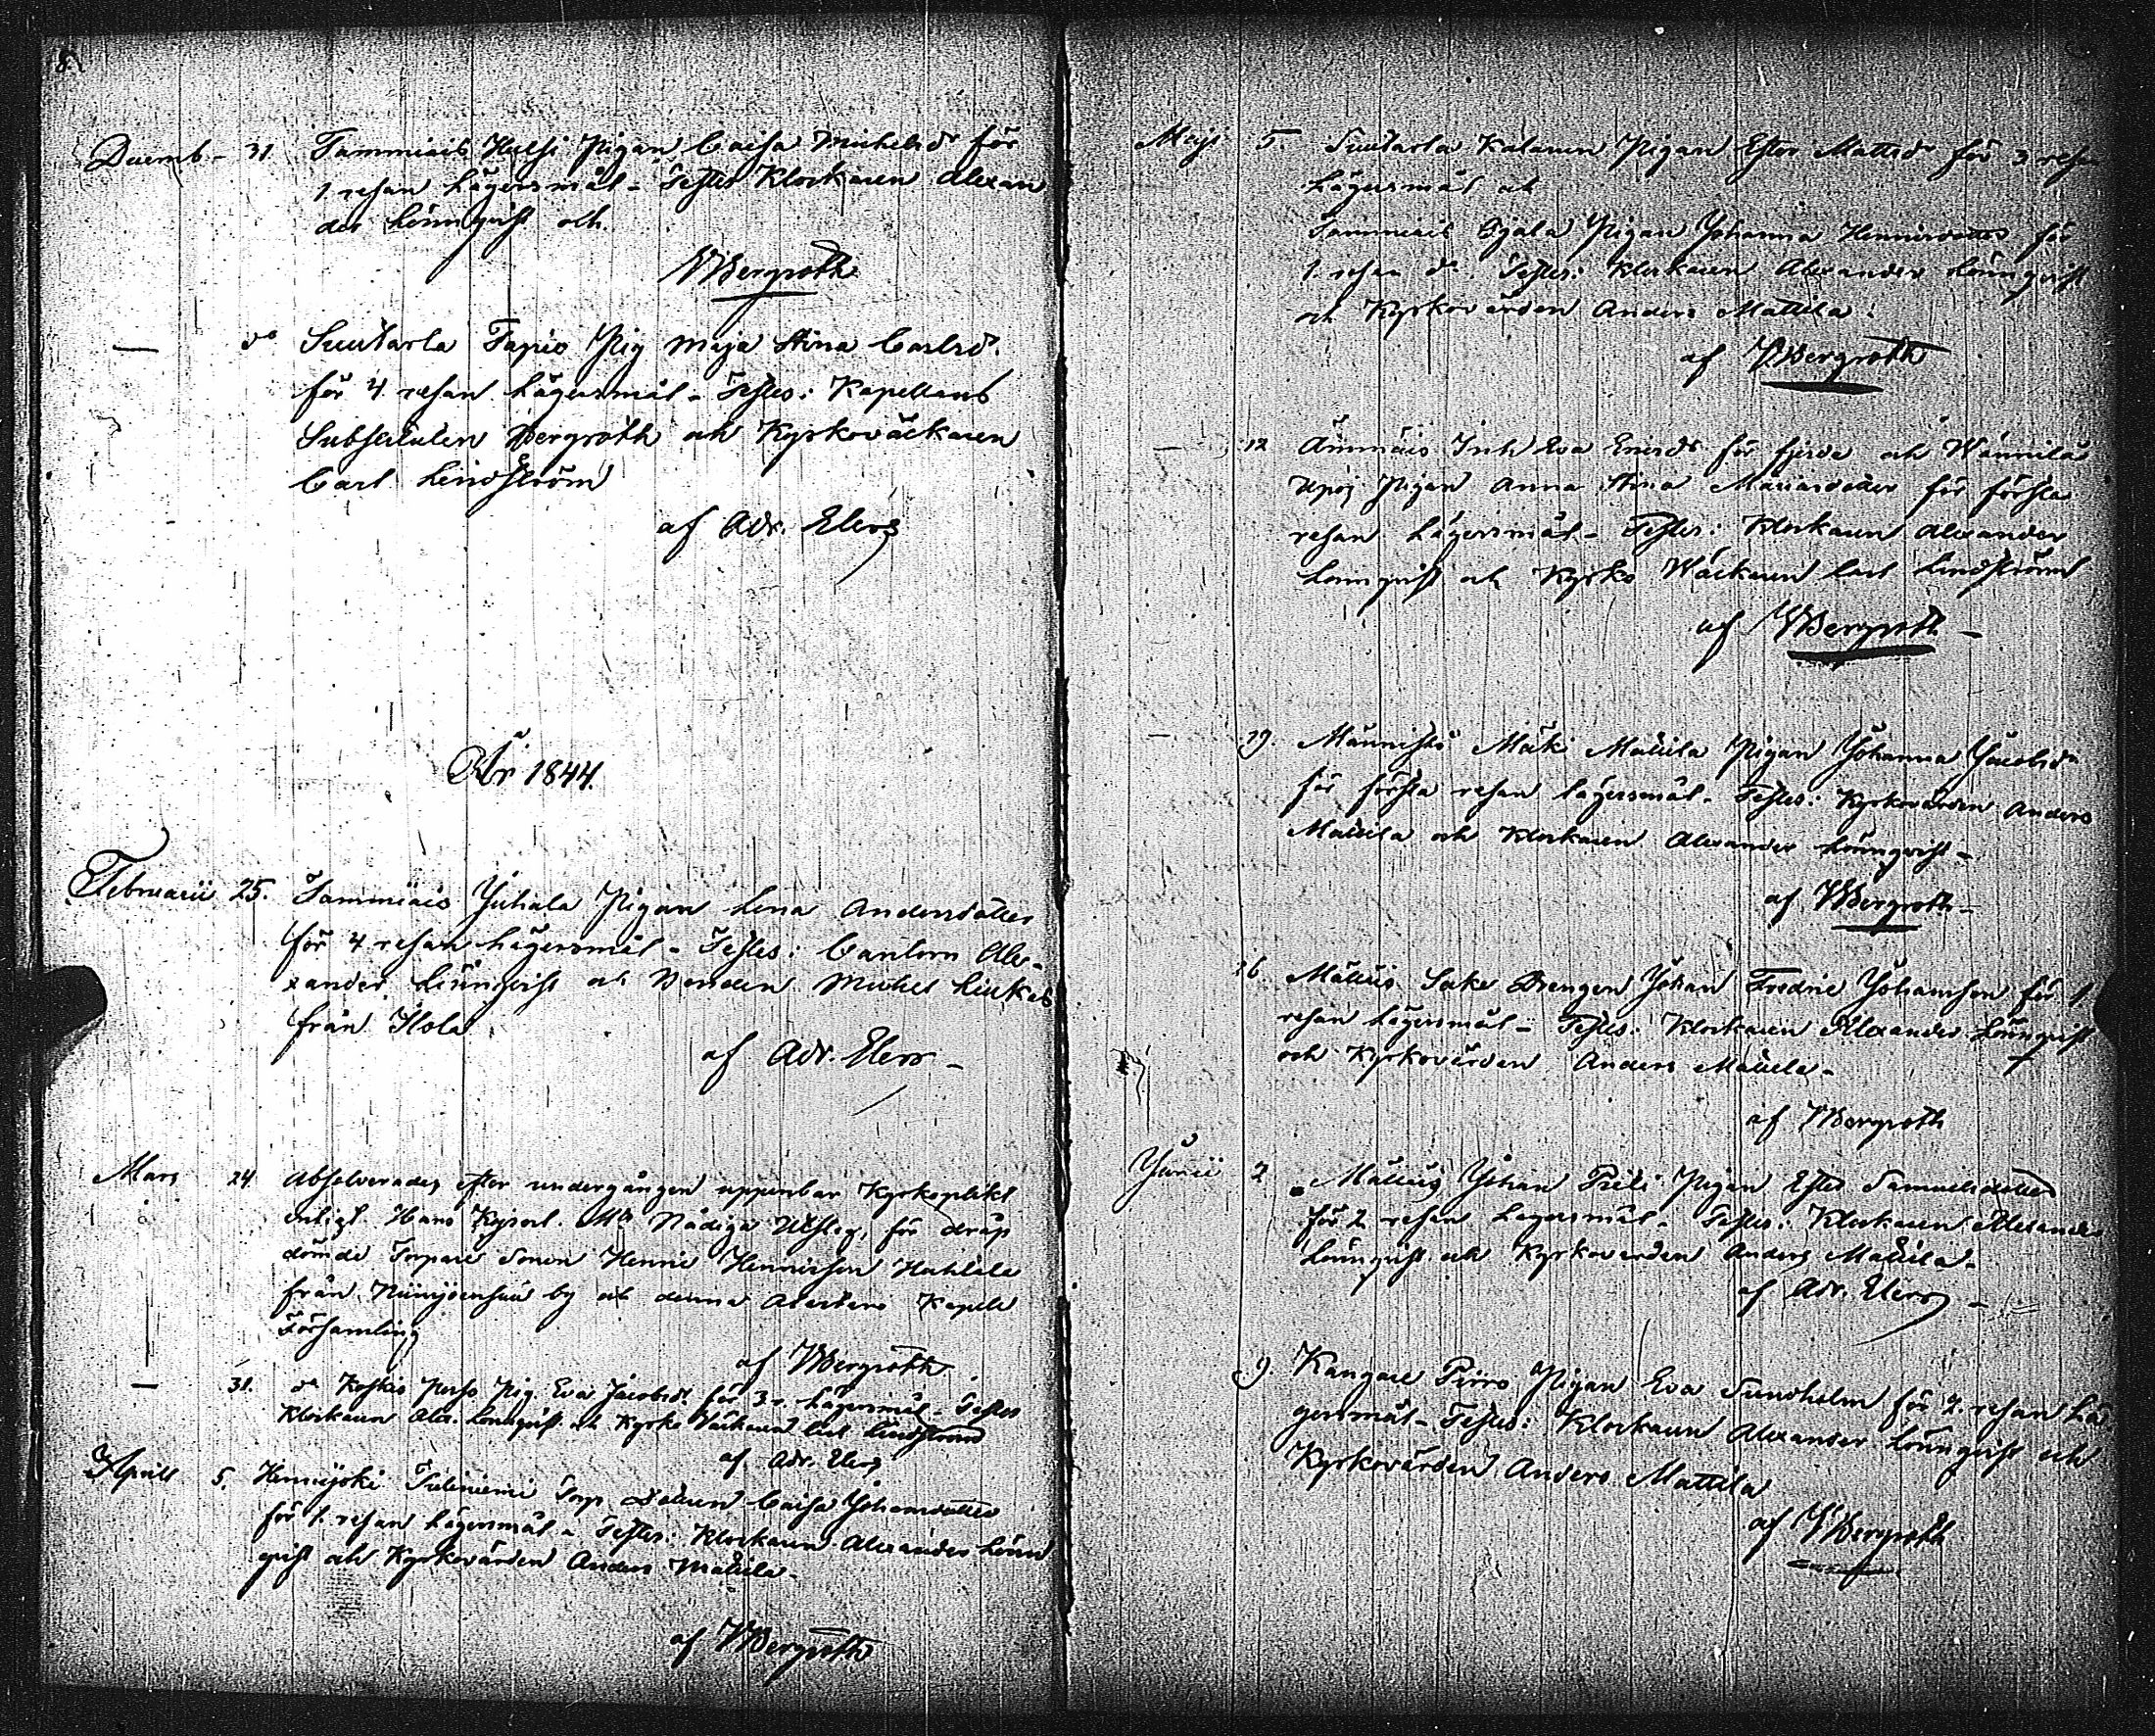 8.
Decemb - 31. Tammiais Huhsi Pigan Caisa Michelsdr för
1 resan Lägersmål - Testes Klockaren Alexan
der Lönnqvist och
VBergroth
— do Suutarla Tapio Pig Maja Stina Carlsd.
för 4 resan Lägersmål - Testes: Kapellans
Substituten Bergroth och Kyrkoväckaren
Carl Lindström
af Adr. Elers
År 1844.
Februarii 25. Tammiais Juhala Pigan Lena Andersdotter
för 4 resan Lägersmål - Testes: Cantorn Alex-
xander Lönnqvist och Bonden Michel
från Ilola
af Adr. Elers -
Mars 24. Absolverades efter undergången uppenbar Kyrkoplikt
enligt Hans Kejserl. Mts Nådiga Utslag, för dråp
dömde Torpare Sonen Henric Henricsson
från by och denna Kapell
Församling
af VBergroth
— 31. do Koskis Pig. Eva Jacobsdr. för 3 r. Lägersmål - Testes
Klockaren Alex. Lönnqvist och Kyrko Väckaren Carl Lindström
af Adr. Elers
Aprill 5. Hennijoki Torp Caisa Johansdotter
för 1 resan Lägersmål - Testes: Klockaren Alexander Lönn
qvist och Kyrkovärden Anders Mattila -
af VBergroth
Maji 5. Suutarla Pigan Ester Mattsdr för 3 resan
Lägersmål och
Tammiais Ojala Pigan Johanna Henricsdotter för
1 resan do. Testes: Klockaren Alexander Lönnqvist
och Kyrkovärden Anders Mattila.
af VBergroth
— 12 Ämmäis Inh Eva Ericsdr för fjerde och Wännilä
Pigan Anna Stina Mariasdotter för första
resan Lägersmål - Testes: Klockaren Alexander
Lönnqvist och Kyrko Wäckaren Carl Lindström
af VBergroth -
— 19. Männistö Mäki Mattila Pigan Johanna Jacobsdr
för första resan lägersmål - Testes: Kyrkovärden Anders
Mattila och Klockaren Alexander Lönnqvist -
af VBergroth -
26 Drengen Johan Fredric Johansson för 1
resan Lägersmål - Testes: Klockaren Alexander Lönnqvist
och Kyrkovärden Anders Mattila -
af VBergroth
Junii 2 Johan Pigan Ester Samuelsdotter
för 2 resan Lägersmål - Testes: Klockaren Alexander
Lönnqvist och Kyrkovärden Anders Mattila -
af Adr. Elers -
9. Kangare Pirro Pigan Eva Sundholm för 4 resan Lä-
gersmål - Testes: Klockaren Alexander Lönnqvist och
Kyrkovärden Anders Mattila
af VBergroth